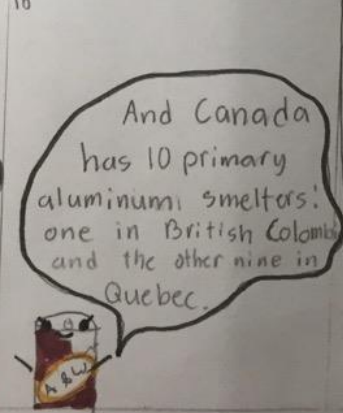 10
And Canada
has 10 primary
aluminum smelters:
one in British Colombi
and the other nine in
Quebec.
A & W